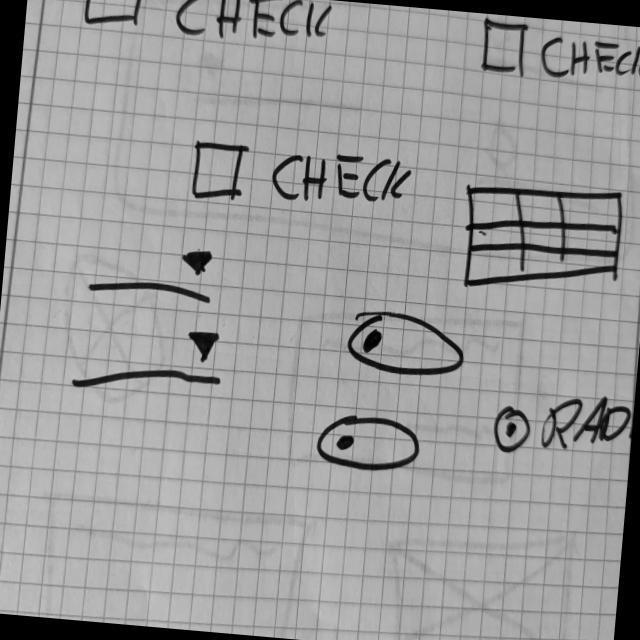 CHECK
CHECK
CHECK
RAD